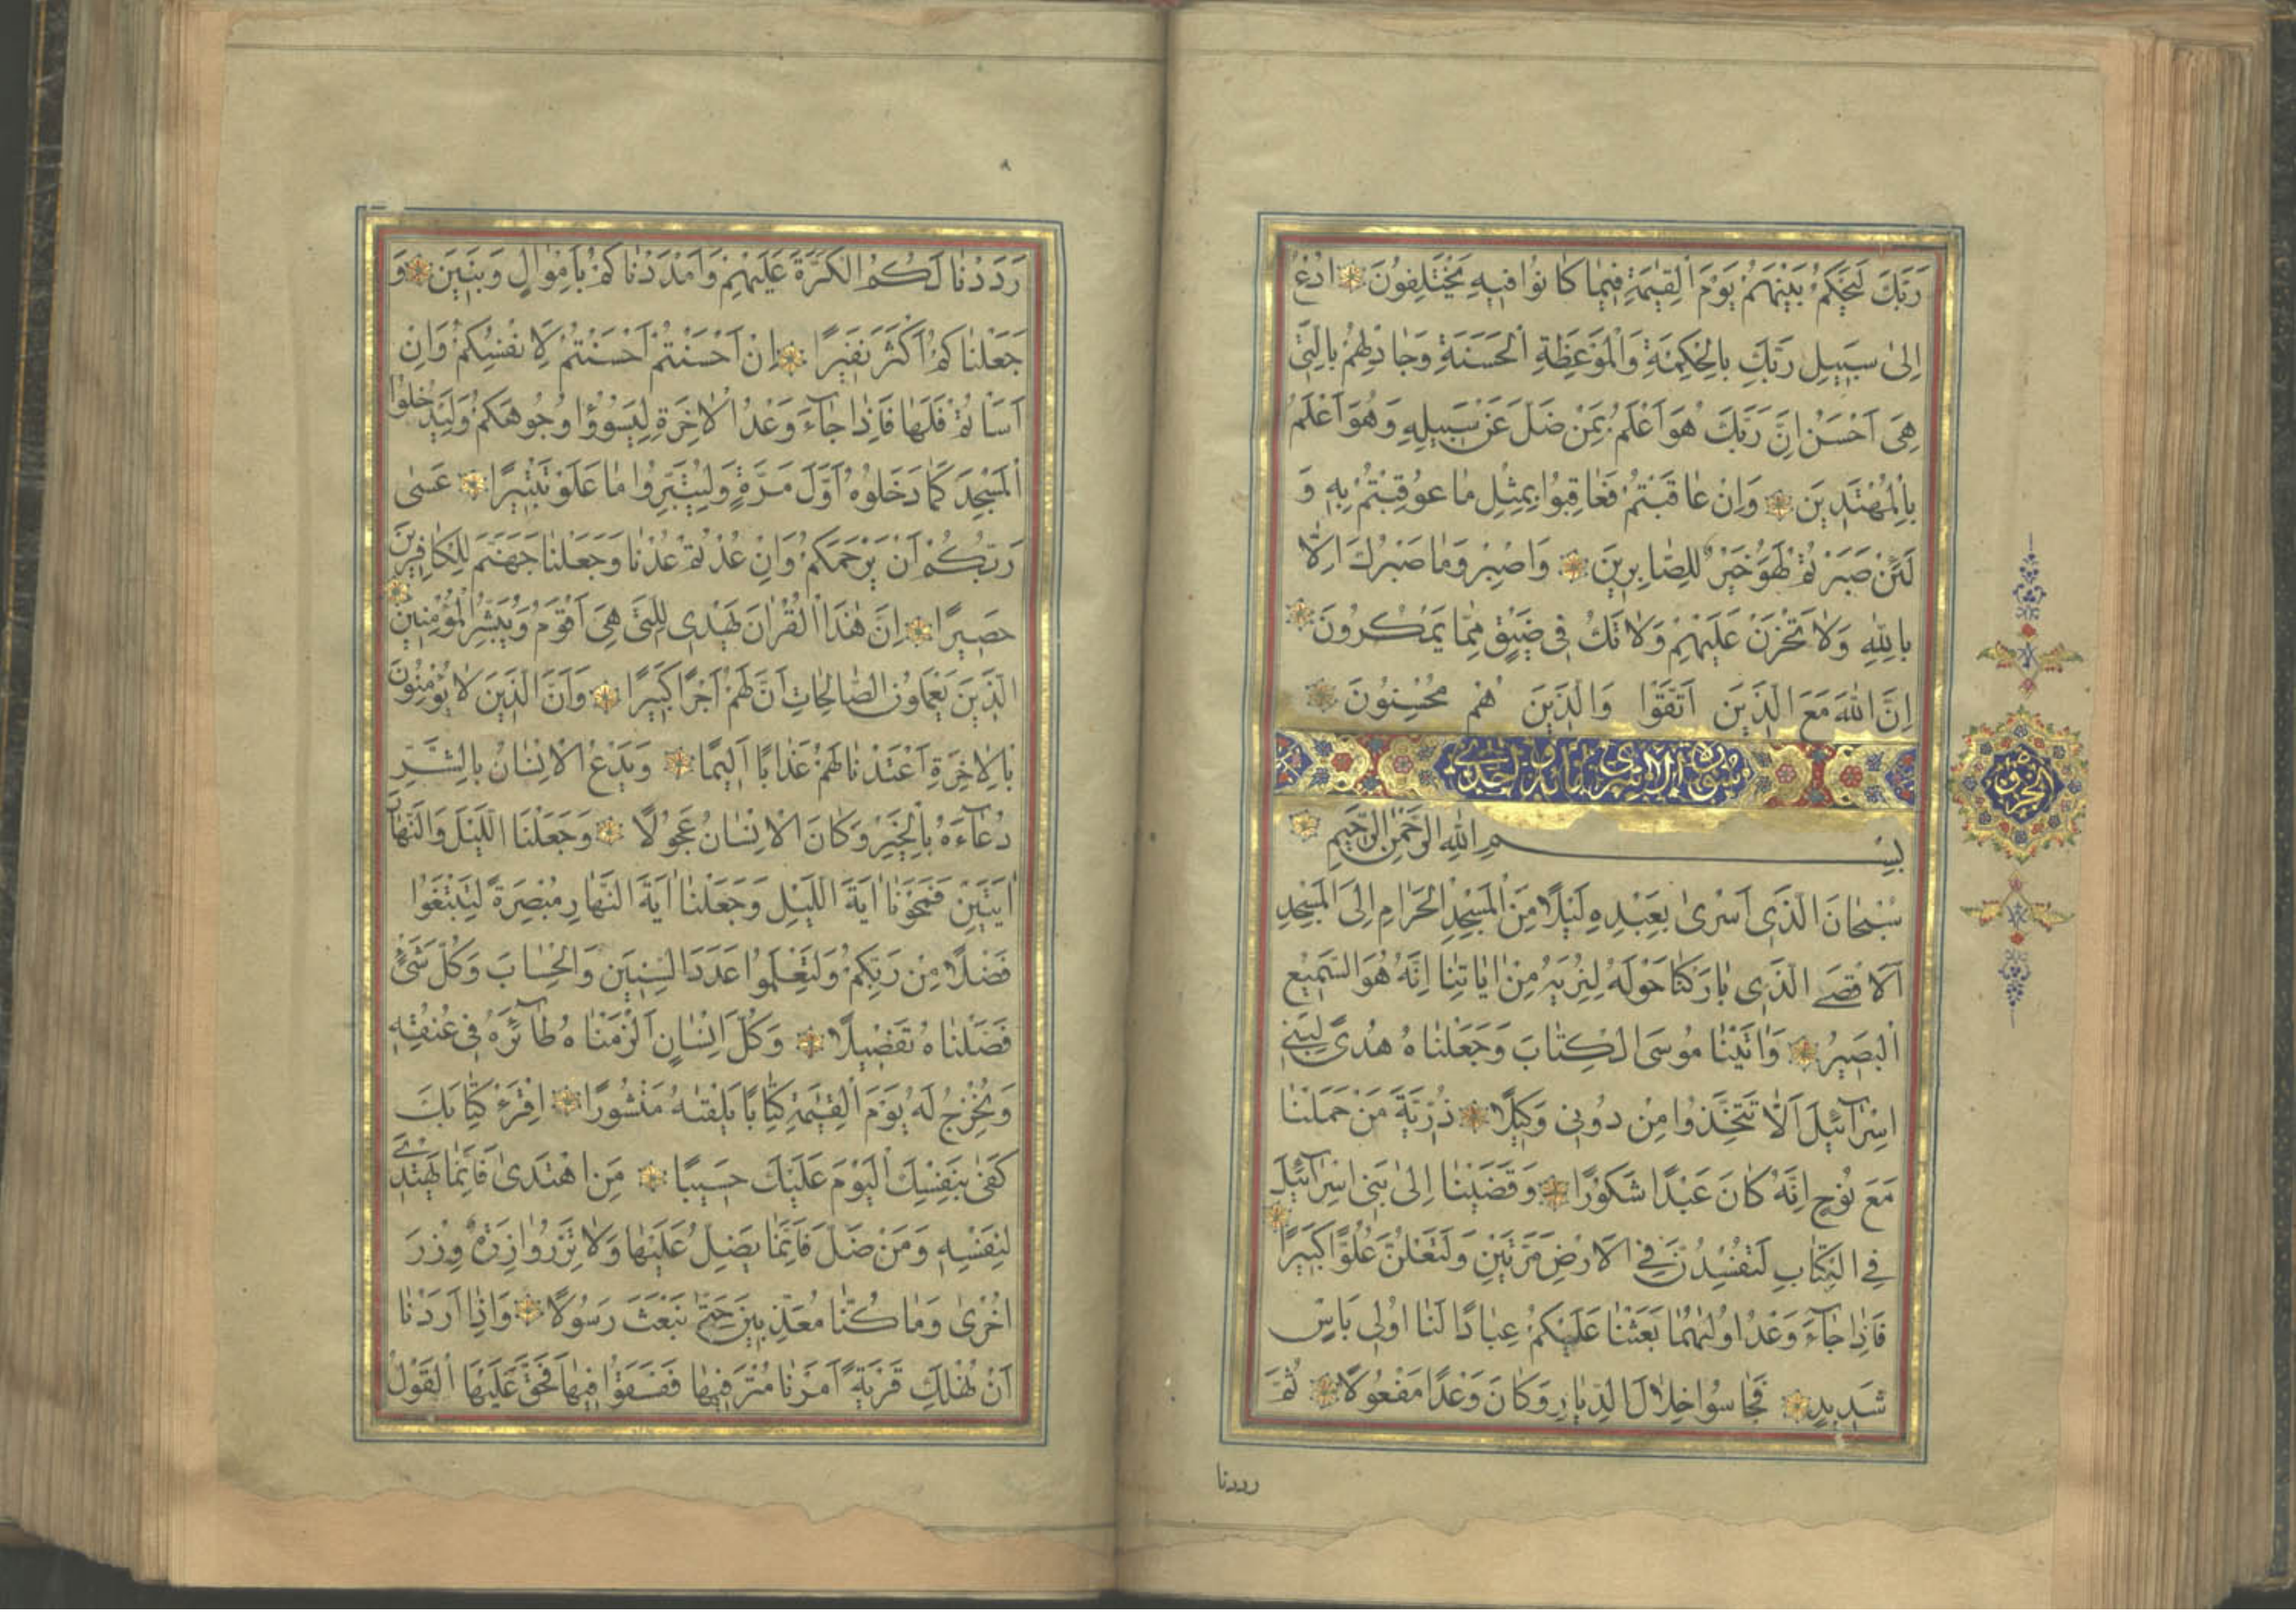 رَبَّكَ لَيَحْكُمُ بَيْنَهُمْ يَوْمَ الْقِيٰمَةِ فِيمَا كَانُوا فِيهِ يَخْتَلِفُونَ ادْعُ
اِلٰى سَبِيلِ رَبِّكَ بِالْحِكْمَةِ وَالْمَوْعِظَةِ الْحَسَنَةِ وَجَادِلْهُمْ بِالَّتِي
هِيَ اَحْسَنُ اِنَّ رَبَّكَ هُوَ اَعْلَمُ بِمَنْ ضَلَّ عَنْ سَبِيلِهِ وَهُوَ اَعْلَمُ
بِالْمُهْتَدِينَ وَاِنْ عَاقَبْتُمْ فَعَاقِبُوا بِمِثْلِ مَا عُوقِبْتُمْ بِهِ وَ
لَئِنْ صَبَرْتُمْ لَهُوَ خَيْرٌ لِلصَّابِرِينَ وَاصْبِرْ وَمَا صَبْرُكَ اِلَّا
بِاللّٰهِ وَلَا تَحْزَنْ عَلَيْهِمْ وَلَا تَكُ فِي ضَيْقٍ مِمَّا يَمْكُرُونَ
اِنَّ اللّٰهَ مَعَ الَّذِينَ اتَّقَوْا وَالَّذِينَ هُمْ مُحْسِنُونَ
الحزب
بِسْمِ اللّٰهِ الرَّحْمٰنِ الرَّحِيمِ
سُبْحَانَ الَّذِي اَسْرٰى بِعَبْدِهِ لَيْلًا مِنَ الْمَسْجِدِ الْحَرَامِ اِلَى الْمَسْجِدِ
الْاَقْصَى الَّذِي بَارَكْنَا حَوْلَهُ لِنُرِيَهُ مِنْ اٰيَاتِنَا اِنَّهُ هُوَ السَّمِيعُ
الْبَصِيرُ وَاٰتَيْنَا مُوسَى الْكِتَابَ وَجَعَلْنَاهُ هُدًى لِبَنِي
اِسْرَآئِيلَ اَلَّا تَتَّخِذُوا مِنْ دُونِي وَكِيلًا ذُرِّيَّةَ مَنْ حَمَلْنَا
مَعَ نُوحٍ اِنَّهُ كَانَ عَبْدًا شَكُورًا وَقَضَيْنَا اِلٰى بَنِي اِسْرَآئِيلَ
فِي الْكِتَابِ لَتُفْسِدُنَّ فِي الْاَرْضِ مَرَّتَيْنِ وَلَتَعْلُنَّ عُلُوًّا كَبِيرًا
فَاِذَا جَآءَ وَعْدُ اُولٰيهُمَا بَعَثْنَا عَلَيْكُمْ عِبَادًا لَنَا اُولِي بَاْسٍ
شَدِيدٍ فَجَاسُوا خِلَالَ الدِّيَارِ وَكَانَ وَعْدًا مَفْعُولًا ثُمَّ
رددنا
رَدَدْنَا لَكُمُ الْكَرَّةَ عَلَيْهِمْ وَاَمْدَدْنَاكُمْ بِاَمْوَالٍ وَبَنِينَ وَ
جَعَلْنَاكُمْ اَكْثَرَ نَفِيرًا اِنْ اَحْسَنْتُمْ اَحْسَنْتُمْ لِاَنْفُسِكُمْ وَاِنْ
اَسَاْتُمْ فَلَهَا فَاِذَا جَآءَ وَعْدُ الْاٰخِرَةِ لِيَسُوؤُا وُجُوهَكُمْ وَلِيَدْخُلُوا
الْمَسْجِدَ كَمَا دَخَلُوهُ اَوَّلَ مَرَّةٍ وَلِيُتَبِّرُوا مَا عَلَوْ تَتْبِيرًا عَسٰى
رَبُّكُمْ اَنْ يَرْحَمَكُمْ وَاِنْ عُدْتُمْ عُدْنَا وَجَعَلْنَا جَهَنَّمَ لِلْكَافِرِينَ
حَصِيرًا اِنَّ هٰذَا الْقُرْاٰنَ يَهْدِي لِلَّتِي هِيَ اَقْوَمُ وَيُبَشِّرُ الْمُؤْمِنِينَ
الَّذِينَ يَعْمَلُونَ الصَّالِحَاتِ اَنَّ لَهُمْ اَجْرًا كَبِيرًا وَاَنَّ الَّذِينَ لَا يُؤْمِنُونَ
بِالْاٰخِرَةِ اَعْتَدْنَا لَهُمْ عَذَابًا اَلِيمًا وَيَدْعُ الْاِنْسَانُ بِالشَّرِّ
دُعَآءَهُ بِالْخَيْرِ وَكَانَ الْاِنْسَانُ عَجُولًا وَجَعَلْنَا اللَّيْلَ وَالنَّهَارَ
اٰيَتَيْنِ فَمَحَوْنَا اٰيَةَ اللَّيْلِ وَجَعَلْنَا اٰيَةَ النَّهَارِ مُبْصِرَةً لِتَبْتَغُوا
فَضْلًا مِنْ رَبِّكُمْ وَلِتَعْلَمُوا عَدَدَ السِّنِينَ وَالْحِسَابَ وَكُلَّ شَيْءٍ
فَصَّلْنَاهُ تَفْصِيلًا وَكُلَّ اِنْسَانٍ اَلْزَمْنَاهُ طَآئِرَهُ فِي عُنُقِهِ
وَنُخْرِجُ لَهُ يَوْمَ الْقِيٰمَةِ كِتَابًا يَلْقٰيهُ مَنْشُورًا اِقْرَءْ كِتَابَكَ
كَفٰى بِنَفْسِكَ الْيَوْمَ عَلَيْكَ حَسِيبًا مَنِ اهْتَدٰى فَاِنَّمَا يَهْتَدِي
لِنَفْسِهِ وَمَنْ ضَلَّ فَاِنَّمَا يَضِلُّ عَلَيْهَا وَلَا تَزِرُ وَازِرَةٌ وِزْرَ
اُخْرٰى وَمَا كُنَّا مُعَذِّبِينَ حَتّٰى نَبْعَثَ رَسُولًا وَاِذَا اَرَدْنَا
اَنْ نُهْلِكَ قَرْيَةً اَمَرْنَا مُتْرَفِيهَا فَفَسَقُوا فِيهَا فَحَقَّ عَلَيْهَا الْقَوْلُ